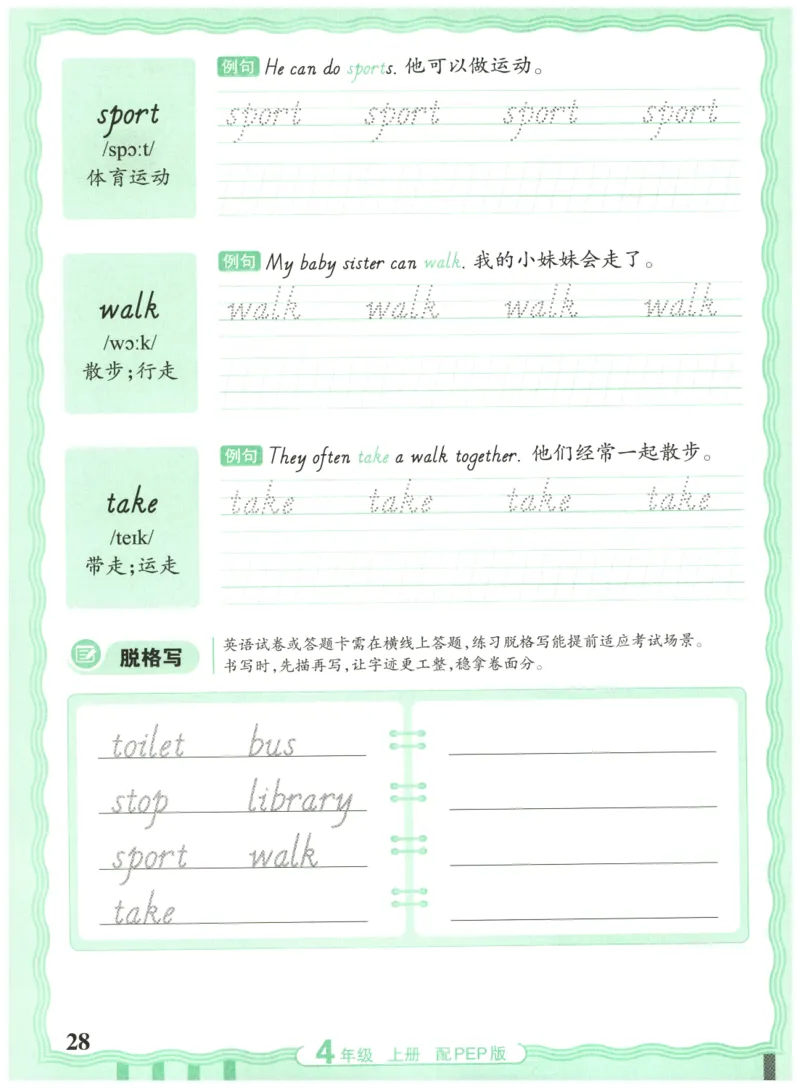 sport
/spɔːt/
体育运动
例句 He can do sports. 他可以做运动。
sport sport sport sport
walk
/wɔːk/
散步;行走
例句 My baby sister can walk. 我的小妹妹会走了。
walk walk walk walk
take
/teɪk/
带走;运走
例句 They often take a walk together. 他们经常一起散步。
take take take take
脱格写
英语试卷或答题卡需在横线上答题,练习脱格写能提前适应考试场景。
书写时,先描再写,让字迹更工整,稳拿卷面分。
toilet bus
stop library
sport walk
take
28
4年级 上册 配PEP版